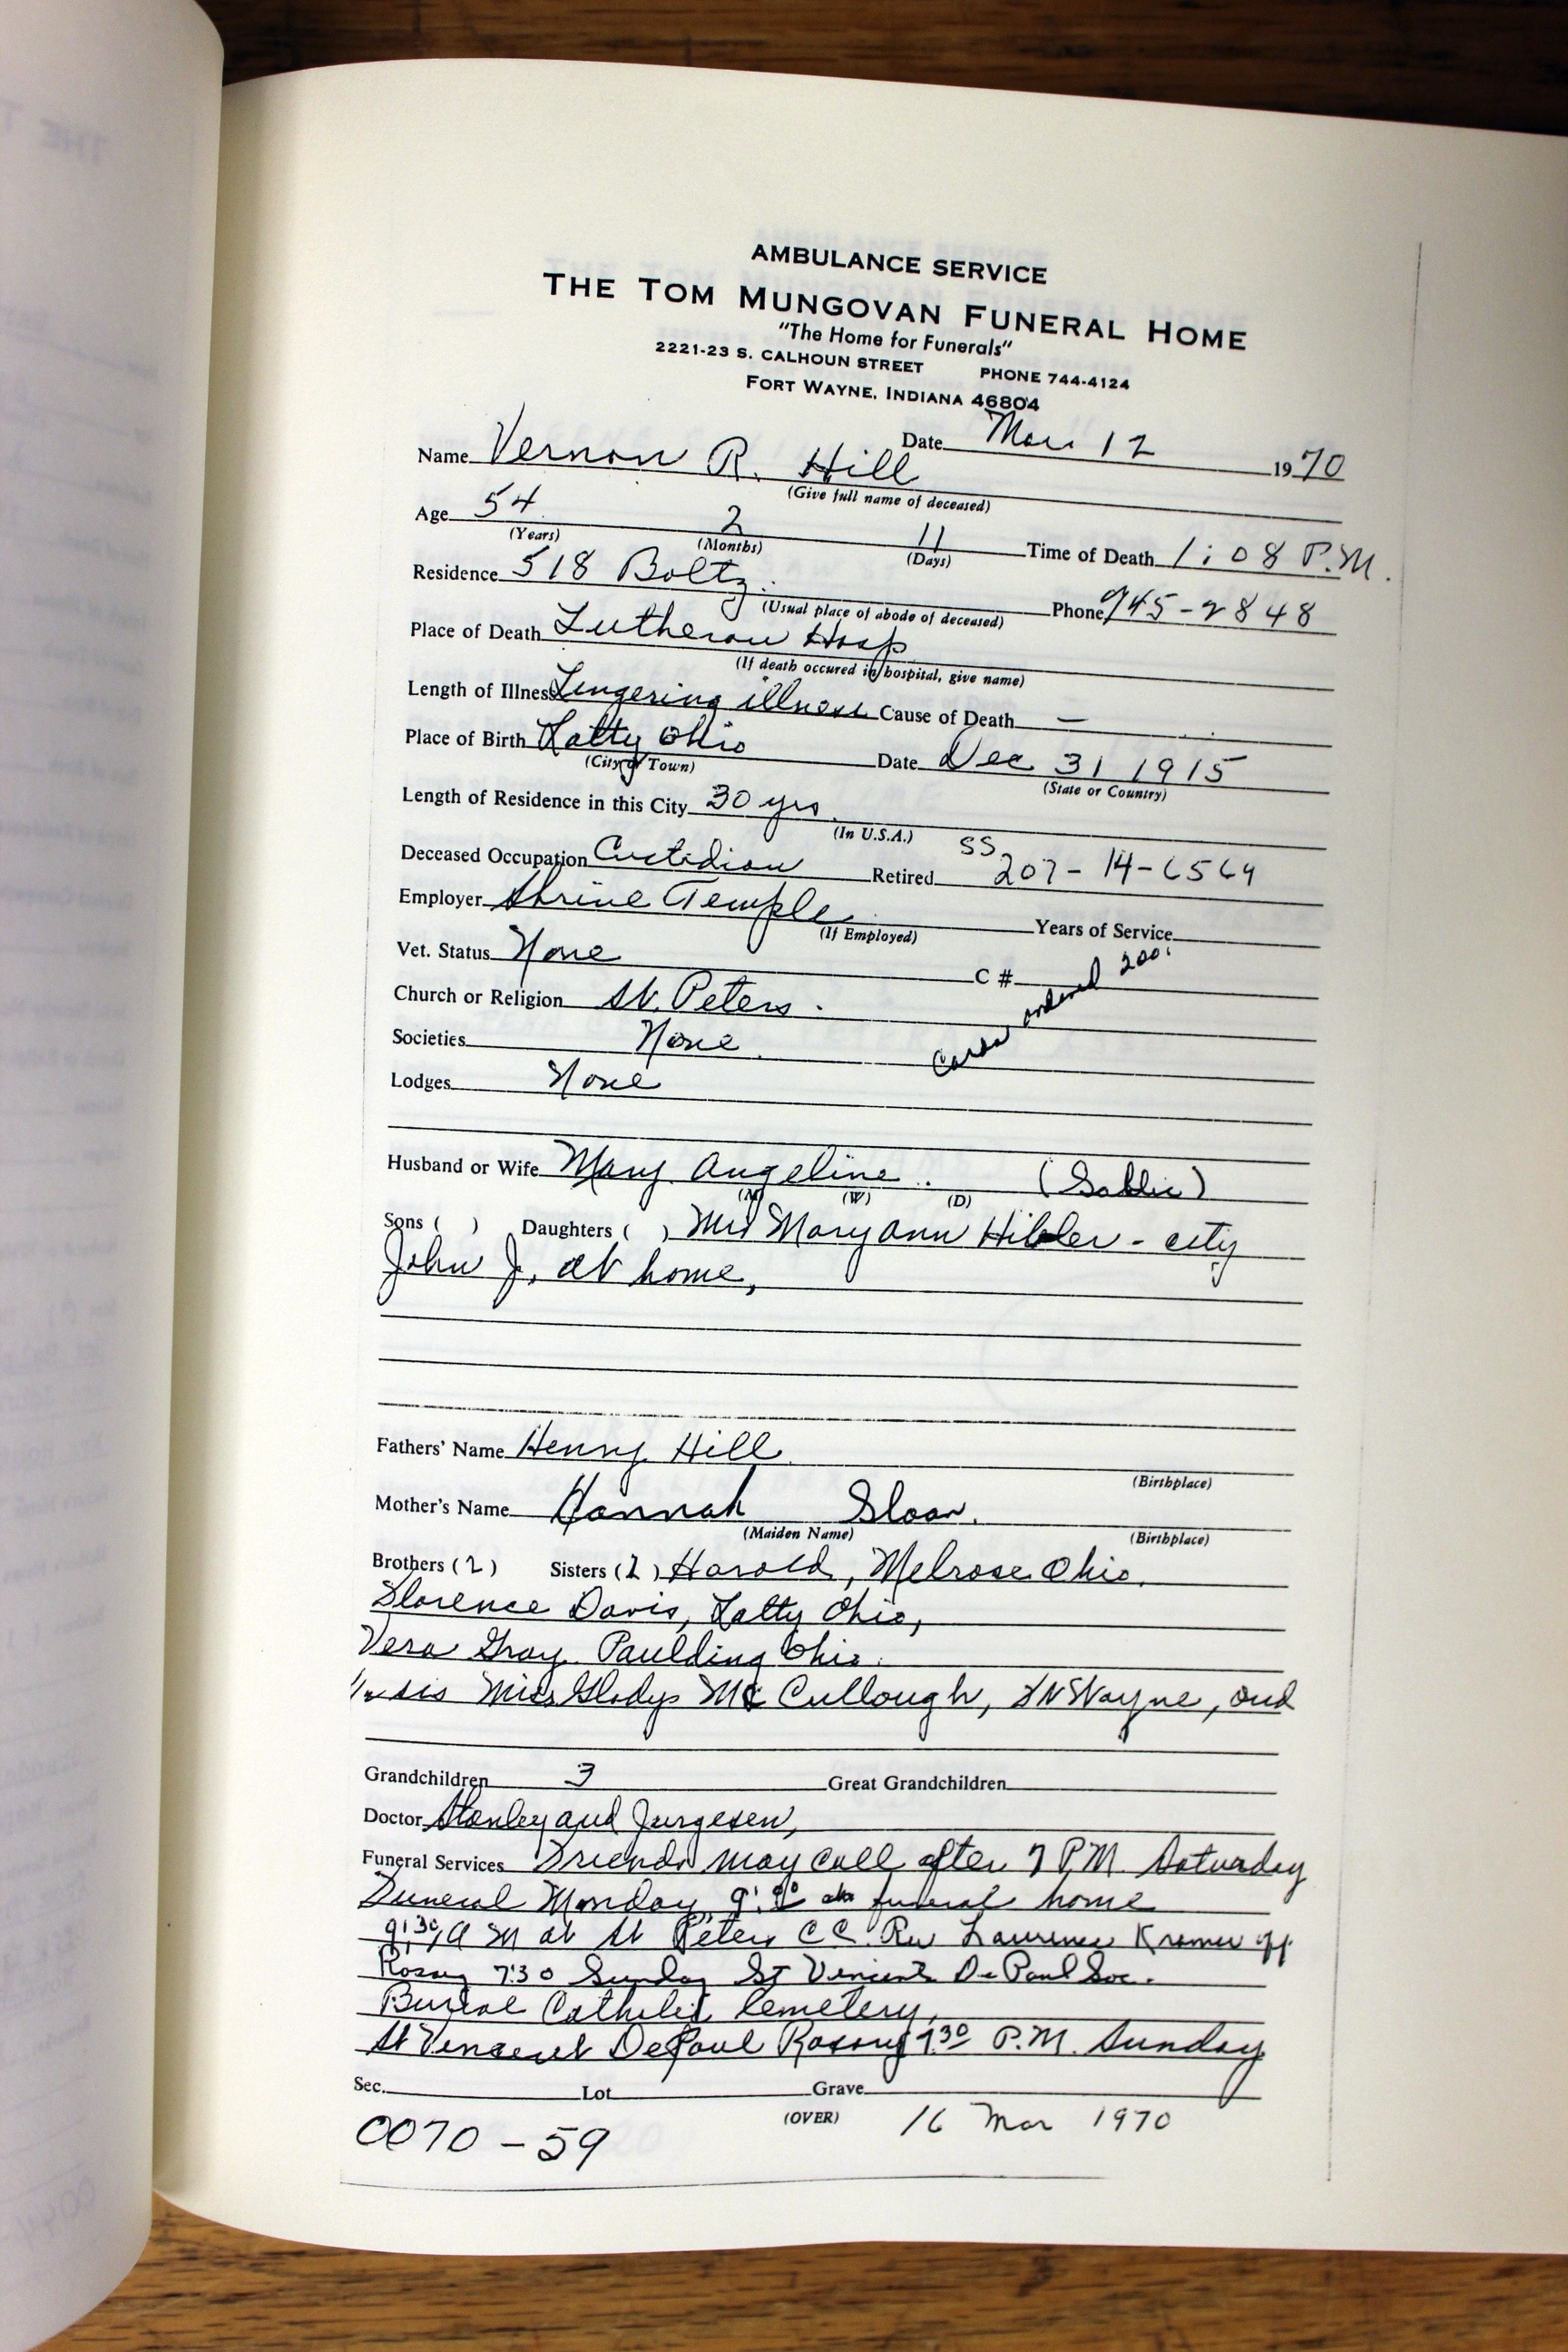 AMBULANCE SERVICE
THE TOM MUNGOVAN FUNERAL HOME
"The Home for Funerals"
2221-23 S. CALHOUN STREET PHONE 744-4124
FORT WAYNE, INDIANA 46804
Date Mar 12 1970
Name Vernon R. Hill
(Give full name of deceased)
Age 54 2 11 Time of Death 1:08 P.M.
(Years) (Months) (Days)
Residence 518 Boltz Phone 745-2848
(Usual place of abode of deceased)
Place of Death Lutheran Hosp
(If death occured in hospital, give name)
Length of Illness Lingering illness Cause of Death —
Place of Birth Latty Ohio Date Dec 31 1915
(City or Town) (State or Country)
Length of Residence in this City 30 yrs.
(In U.S.A.)
Deceased Occupation Custodian Retired SS 207-14-6569
Employer Shrine Temple Years of Service
(If Employed)
Vet. Status None C #
Church or Religion St. Peters.
Cards ordered 200.
Societies None
Lodges None
Husband or Wife Mary Angeline. (Sallie)
(M) (W) (D)
Sons ( ) Daughters ( ) Mrs Maryann Hibler - city
John J, at home,
Fathers' Name Henry Hill
(Birthplace)
Mother's Name Hannah Sloan.
(Maiden Name) (Birthplace)
Brothers (2) Sisters (2) Harold, Melrose Ohio.
Florence Davis, Latty Ohio,
Vera Gray Paulding Ohio.
sis Miss Gladys McCullough, Ft Wayne, and
Grandchildren 3 Great Grandchildren
Doctor Stanley and Jurgesen,
Funeral Services Friends may call after 7 P.M. Saturday
Funeral Monday, 9:00 funeral home
9:30 A M at St Peters C C. Rev Laurence Kramer off
Rosary 7:30 Sunday St Vincent DePaul Soc.
Burial Catholic Cemetery,
St Vincent DePaul Rosary 7:30 P.M. Sunday
Sec. Lot Grave
(OVER) 16 Mar 1970
0070-59